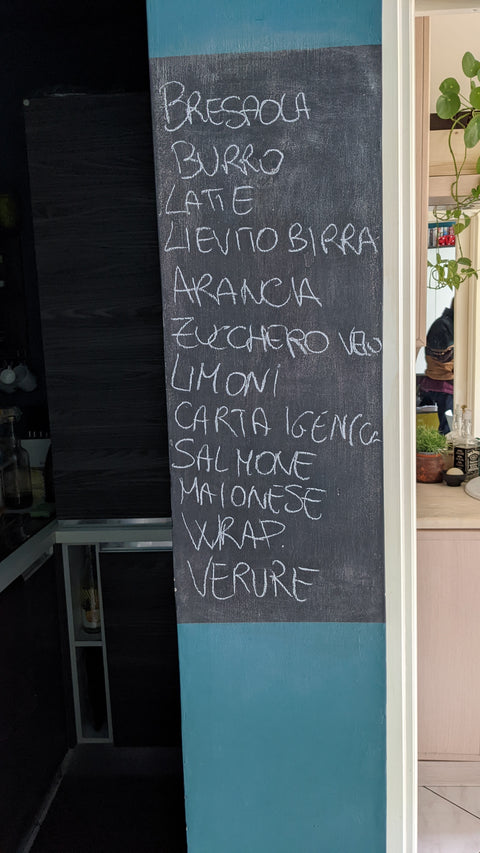 BRESAOLA
BURRO
LATTE
LIEVITO BIRRA
ARANCIA
ZUCCHERO VELO
LIMONI
CARTA IGENICA
SALMONE
MAIONESE
WRAP.
VERURE